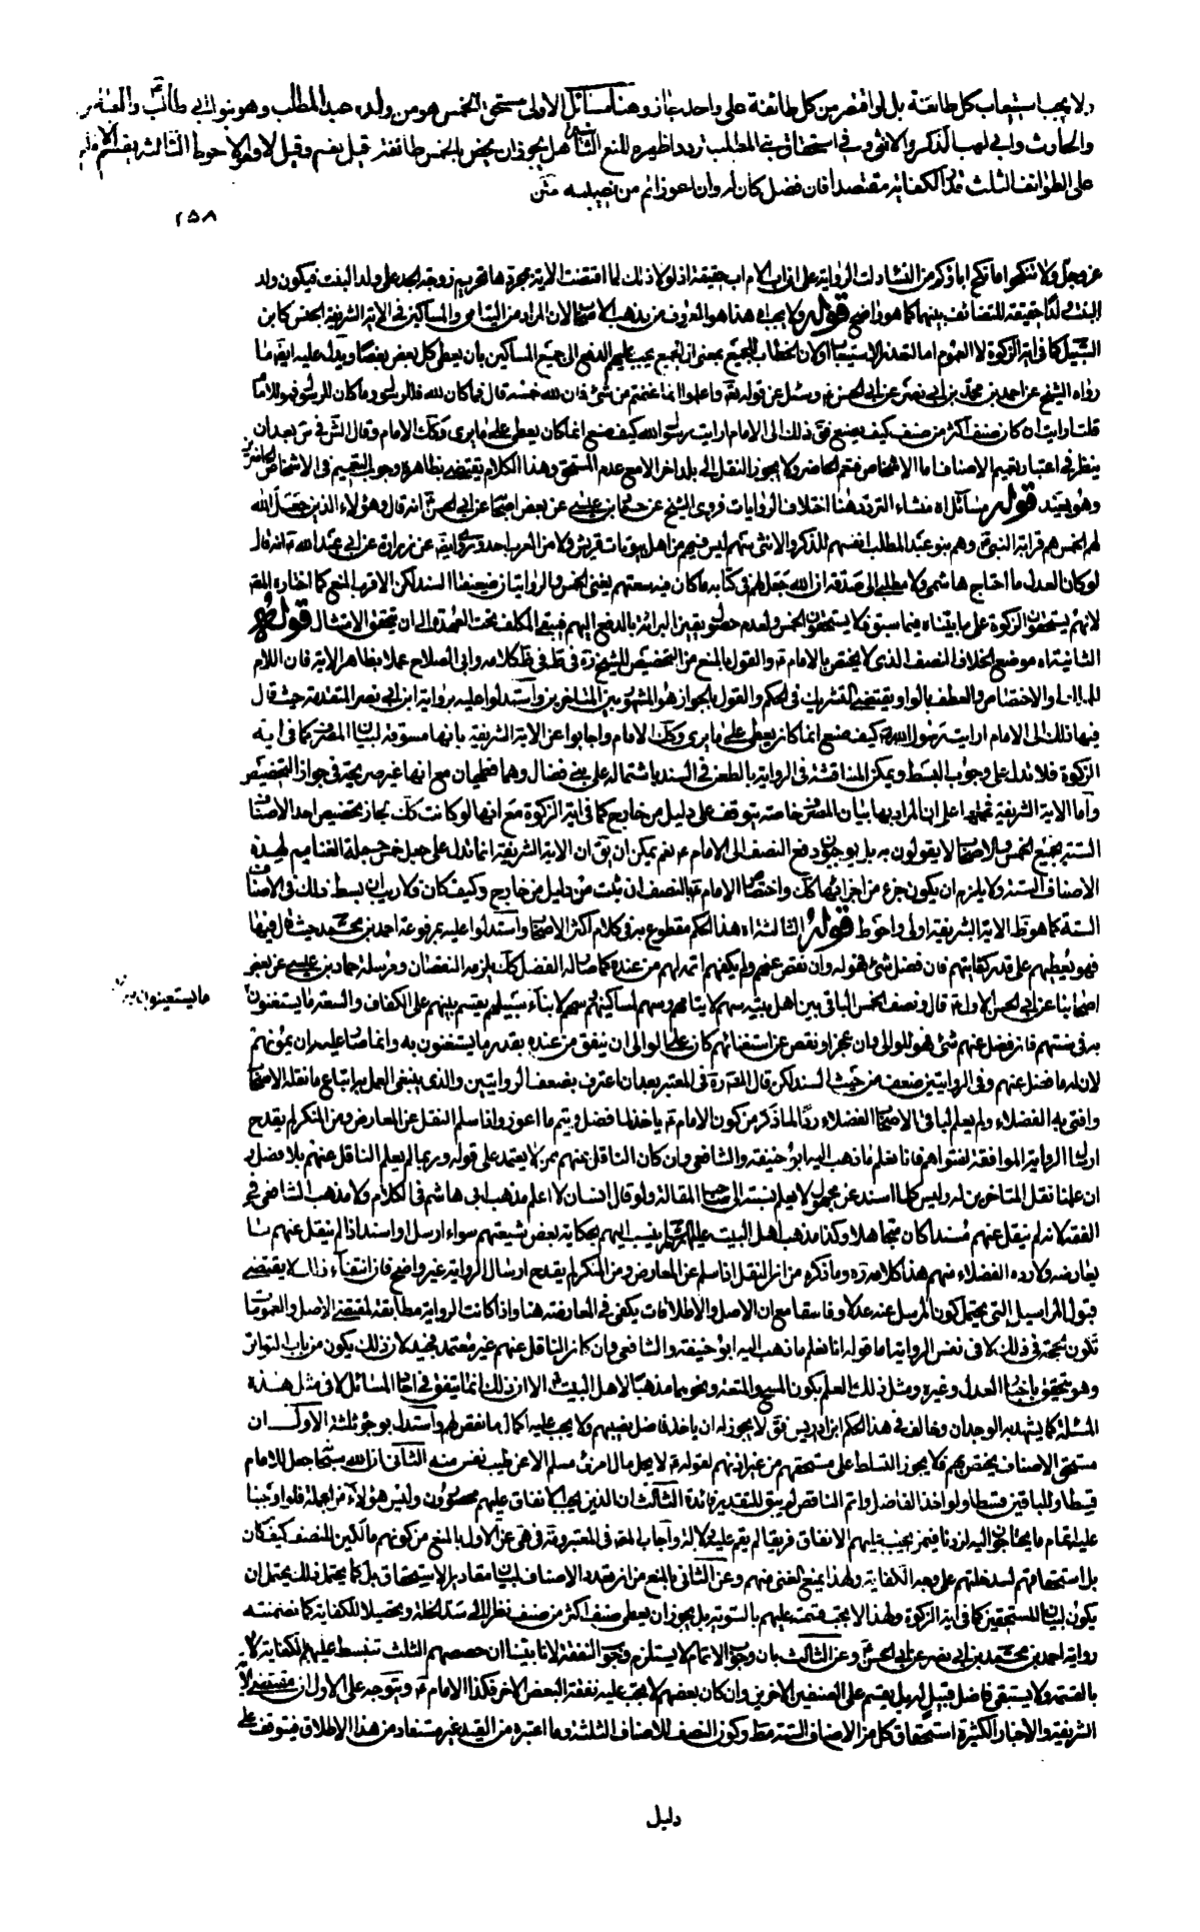 ولا يجب استيعاب كل طائفة بل لو اقتصر من كل طائفة على واحد جاز وهنا مسائل الاولى مستحق الخمس هو من ولده عبد المطلب وهم بنو ابي طالب والعباس
والحارث وابي لهب الذكر والانثى وفي استحقاق بني المطلب تردد اظهره المنع الثانية هل يجوز ان يخص بالخمس طائفة قيل نعم وقيل لا وهو الاحوط الثالثة يقسم الامام
على الطوائف الثلث قدر الكفاية مقتصدا فان فضل كان له وان اعوز اتم من نصيبه متن
٢٥٨
عز وجل ولا تنكحوا ما نكح اباؤكم من النساء دلت الرواية على ان اب الام اب حقيقة اذ لولا ذلك لما اقتضت الاية بمجردها تحريم زوجة الجد على ولد البنت فيكون ولد
البنت ولدا حقيقة للتضائف بينهما كما هو واضح قوله ولا يجب اه هذا هو المعروف من مذهب الاصحاب لان المراد من اليتامى والمساكين في الاية الشريفة الجنس كابن
السبيل كما في اية الزكوة لا العموم اما لتعذر الاستيعاب او لان الخطاب للجميع بمعنى ان الجميع يجب عليهم الدفع الى جميع المساكين بان يعطى كل بعض بعضا ويدل عليه ايضا ما
رواه الشيخ عن احمد بن محمد بن ابي نصر عن ابي الحسن ع وسئل عن قوله تعالى واعلموا انما غنمتم من شئ فان لله خمسه قال فما كان لله فللرسول وما كان للرسول فهو للامام
قلت ارايت ان كان صنف اكثر من صنف كيف يصنع فقال ذلك الى الامام ارايت رسول الله كيف صنع انما كان يعطى على ما يرى وكذلك الامام وقال الش في س بعد ان
ينظر في اعتبار تعميم الاصناف اما الاشخاص فتعم الحاضر ولا يجوز النقل الى بلد اخر الا مع عدم المستحق وهذا الكلام يقتضي بظاهره وجوب التعميم في الاشخاص الحاضرين
وهو بعيد قوله مسائل اه منشاء التردد هنا اختلاف الروايات فروى الشيخ عن حماد بن عيسى عن بعض اصحابنا عن ابي الحسن ع انه قال وهؤلاء الذين جعل الله
لهم الخمس هم قرابة النبي ص وهم بنو عبد المطلب انفسهم الذكر والانثى منهم ليس فيهم من اهل بيوتات قريش ولا من العرب احد وفي رواية عن زرارة عن ابي عبد الله ع انه قال
لو كان العدل ما احتاج هاشمي ولا مطلبي الى صدقة ان الله جعل لهم في كتابه ما كان فيه سعتهم يعني الخمس والروايتان ضعيفتا السند لكن الاقرب المنع كما اختاره المصه
لانهم يستحقون الزكوة على ما بيناه فيما سبق فلا يستحقون الخمس ولعدم حصول يقين البرائة بالدفع اليهم فيبقى المكلف تحت العهدة الى ان يتحقق الامتثال قوله
الثانية اه موضع الخلاف النصف الذي لا يختص بالامام ع والقول بالمنع من التخصيص للشيخ ره في ط في ظ كلامه وابي الصلاح عملا بظاهر الاية فان اللام
للملك او الاختصاص والعطف بالواو يقتضي التشريك في الحكم والقول بالجواز هو المشهور بين المتاخرين واستدلوا عليه برواية ابن ابي نصر المتقدمة حيث قال
فيها ذلك الى الامام ارايت رسول الله ص كيف صنع انما كان يعطى على ما يرى وكذلك الامام واجابوا عن الاية الشريفة بانها مسوقة لبيان المصرف كما في اية
الزكوة فلا تدل على وجوب البسط ويمكن المناقشة في الرواية بالطعن في السند باشتماله على بني فضال وهما فطحيان مع انها غير صريحة في جواز التخصيص
واما الاية الشريفة فحملها على ان المراد بها بيان المصرف خاصة يتوقف على دليل من خارج كما في اية الزكوة مع انها لو كانت كذلك لجاز تخصيص احد الاصناف
الستة بجميع الخمس والاصحاب لا يقولون به بل يوجبون دفع النصف الى الامام ع نعم يمكن ان يق ان الاية الشريفة انما تدل على جعل خمس جملة الغنايم لهذه
الاصناف الستة ولا يلزم ان يكون جزء من اجزائها كذلك واختصاص الامام ع بالنصف ان ثبت من دليل من خارج وكيف كان فلا ريب ان بسط ذلك في الاصناف
الستة كما هو ظ الاية الشريفة اولى واحوط قوله الثالثة اه هذا الحكم مقطوع به في كلام اكثر الاصحاب واستدلوا عليه بمرفوعة احمد بن محمد حيث قال فيها
فهو يعطيهم على قدر كفايتهم فان فضل شئ فهو له وان نقص عنهم ولم يكفهم اتمه لهم من عنده كما صار له الفضل كذلك يلزمه النقصان ومرسلة حماد بن عيسى عن بعض
اصحابنا عن ابي الحسن الاول ع قال ونصف الخمس الباقي بين اهل بيته سهم لايتامهم وسهم لمساكينهم وسهم لابناء سبيلهم يقسم بينهم على الكفاف والسعة ما يستغنون
ما يستعينون به
به في سنتهم فان فضل عنهم شئ فهو للوالي وان عجز او نقص عن استغنائهم كان على الوالي ان ينفق من عنده بقدر ما يستغنون به وانما صار عليه ان يمونهم
لان له ما فضل عنهم وفي الروايتين ضعف من حيث السند لكن قال المصه ره في المعتبر بعد ان اعترف بضعف الروايتين والذي ينبغي العمل به اتباع ما نقله الاصحاب
وافتى به الفضلاء ولم يعلم لباقي الاصحاب الفضلاء ردا لما ذكر من كون الامام ع ياخذ ما فضل ويتم ما اعوز واذا سلم النقل عن المعارض ومن المنكر لم يقدح
ارسال الرواية الموافقة لفتواهم فانا نعلم ما ذهب اليه ابو حنيفة والشافعي وان كان الناقل عنهم ممن لا يعتمد على قوله وربما لم يعلم الناقل عنهم بلا فصل و
ان علمنا نقل المتاخرين له وليس كلما اسند عن مجهول لا يعلم نسبته الى صاحب المقالة ولو قال انسان لا اعلم مذهب ابي هاشم في الكلام ولا مذهب الشافعي في
الفقه لانه لم ينقل عنهم مسندا كان متجاهلا وكذا مذهب اهل البيت عليهم السلام ينسب اليهم بحكاية بعض شيعتهم سواء ارسل او اسند اذا لم ينقل عنهم ما
يعارضه ولا رده الفضلاء منهم هذا كلامه ره وما ذكره من ان النقل اذا سلم عن المعارض ومن المنكر لم يقدح ارسال الرواية غير واضح فان انتفاء ذلك لا يقتضي
قبول المراسيل التي يحتمل كون المرسل عنه عدلا وفاسقا مع ان الاصل والاطلاقات يكفي في المعارضة هنا واذا كانت الرواية مطابقة لمقتضى الاصل والعمومات
تكون الحجة في ذلك لا في نفس الرواية اما قوله انا نعلم ما ذهب اليه ابو حنيفة والشافعي وان كان الناقل عنهم غير معتمد فجيد لان ذلك يكون من باب التواتر
وهو يتحقق باخبار العدل وغيره ومثل ذلك العلم بكون المسح والمتعة ونحوهما مذهبا لاهل البيت ع الا ان ذلك انما يتفق في احاد المسائل لا في مثل هذه
المسئلة كما يشهد به الوجدان وخالف في هذا الحكم ابن ادريس فقال لا يجوز له ان ياخذ فاضل نصيبهم ولا يجب عليه اكمال ما نقص لهم واستدل بوجوه ثلثة الاول ان
مستحق الاصناف يختص بهم فلا يجوز التسلط على مستحقهم من غير اذنهم لقوله ع لا يحل مال امرئ مسلم الا عن طيب نفس منه الثاني ان الله سبحانه جعل للامام
قسطا وللباقين قسطا ولو اخذ الفاضل واتم الناقص لم يبق للتقدير فائدة الثالث ان الذين يجب الانفاق عليهم محصورون وليس هؤلاء من الجملة فلو اوجبنا
عليه اتمام ما يحتاجون اليه لزدنا فيمن يجب عليهم الانفاق فريقا لم يقم عليه دلالة واجاب المصه في المعتبر عن الاول بالمنع من كونهم مالكين للنصف كيف كان
بل استحقاقهم لسد خلتهم على وجه الكفاية ولهذا يمنع الغني منهم وعن الثاني بالمنع من ان قصد الاصناف لبيان مقادير الاستحقاق بل كما يحتمل ذلك يحتمل ان
يكون لبيان المستحقين كما في اية الزكوة ولهذا لا يجب قسمته عليهم بالسوية بل يجوز ان يعطى صنف اكثر من صنف نظرا الى سد الخلة وتحصيلا للكفاية كما تضمنته
رواية احمد بن محمد بن ابي نصر عن ابي الحسن ع وعن الثالث بان وجوب الاتمام لا يستلزم وجوب النفقة لانا بينا ان حصصهم الثلث تبسط عليهم للكفاية لا
بالقسمة ولا يستبقى فاضل قبيل لقبيل بل يقسم على الصنفين الاخرين وان كان بعضهم لا يجب عليه نفقة البعض الاخر فكذا الامام ع ويتوجه على الاول ان مقتضى الاية
الشريفة والاخبار الكثيرة استحقاق كل من الاصناف الستة مط وكون النصف للاصناف الثلثة وما اعتبره من القيد غير مستفاد من هذا الاطلاق فيتوقف على
دليل